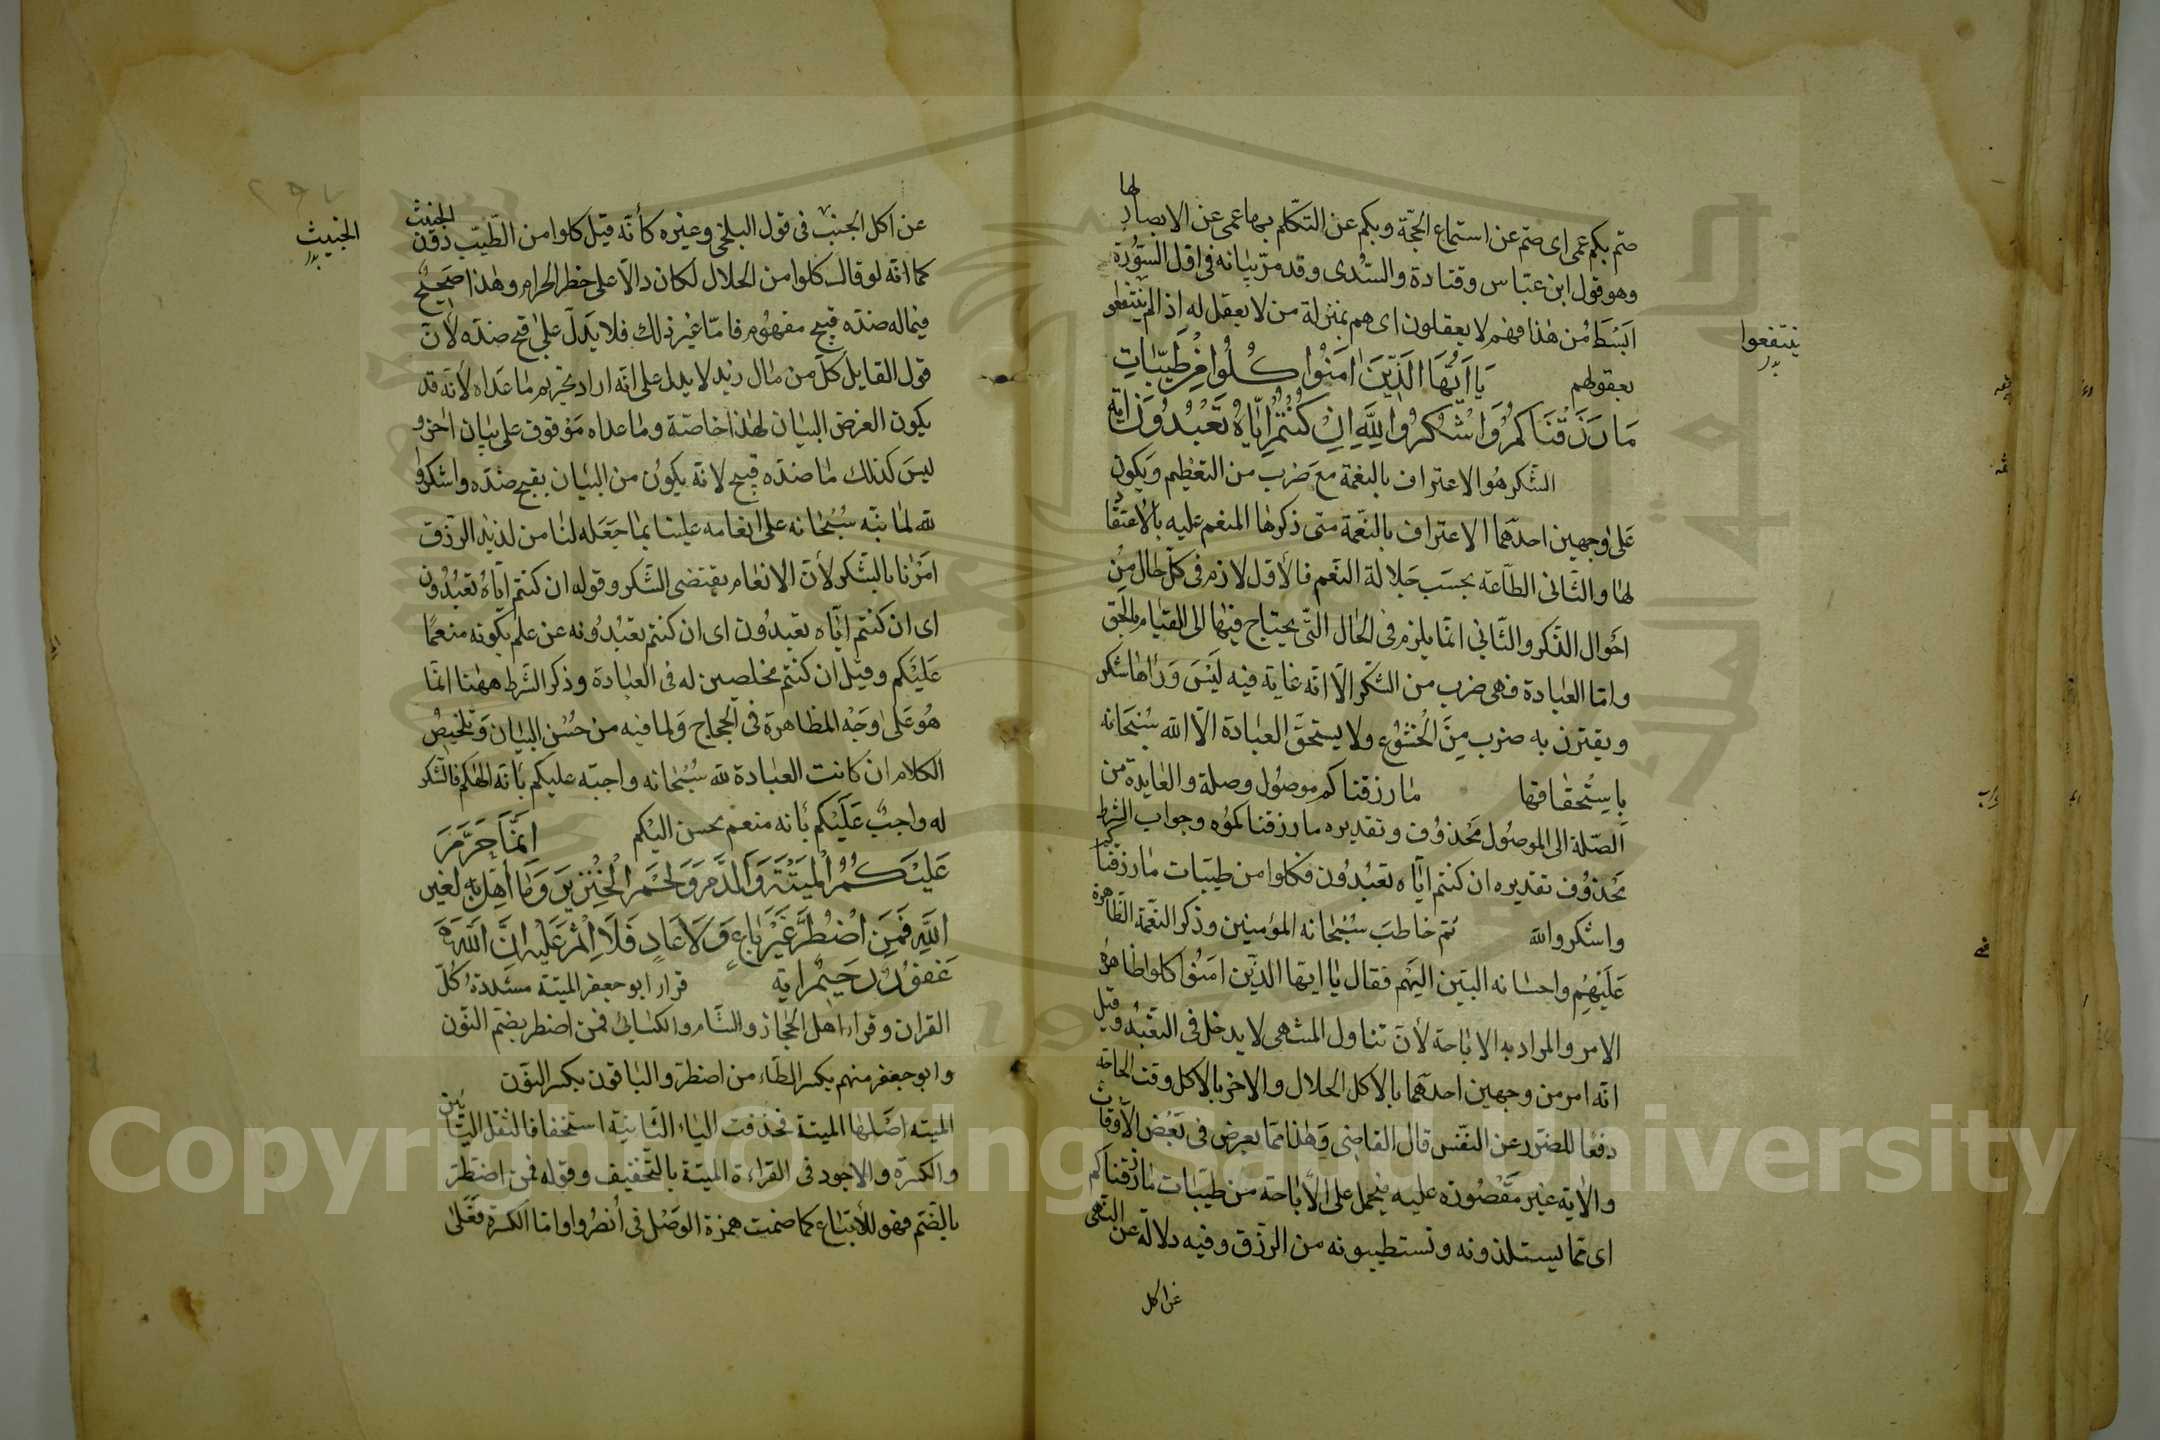 لها
صم بكم عمى اى صم عن استماع الحجّة وبكم عن التكلّم بها عمى عن الابصار
وهو قول ابن عبّاس وقتادة والسّدى وقد مرّ بيانه فى اوّل السّورة
ابسط من هذا فهم لا يعقلون اى هم بمنزلة من لا يعقل له اذ لم ينتفعوا
ينتفعوا
بدل
بعقولهم يَا اَيُّهَا الَّذِينَ اٰمَنُوا كُلُوا مِنْ طَيِّبَاتِ
مَا رَزَقْنَاكُمْ وَاشْكُرُوا لِلَّهِ اِنْ كُنْتُمْ اِيَّاهُ تَعْبُدُونَ اية
الشّكر هو الاعتراف بالنعمة مع ضرب من التعظيم ويكون
على وجهين احدهما الاعتراف بالنعمة متى ذكرها المنعم عليه بالاعتقاد
لها والثّانى الطّاعة بحسب جلالة النّعم فالأوّل لازم فى كلّ حال من
احوال الذّكر والثّانى انّما يلزم فى الحال التّى يحتاج فيها الى القيام بالحق
وامّا العبادة فهى ضرب من الشّكر الّا انّه غاية فيه ليس وراها شكر
ويقترن به ضرب من الخشوع ولا يستحقّ العبادة الّا الله سبحانه
باستحقاقها ما رزقناكم موصول وصلة والعايدة من
الصّلة الى الموصول محذوف وتقديره ما رزقناكموه وجواب الشرط
محذوف تقديره ان كنتم ايّاه تعبدون فكلوا من طيبات ما رزقناكم
واشكروا لله ثم خاطب سبحانه المؤمنين وذكر النعمة الظّاهرة
عليهم واحسانه البيّن اليهم فقال يا ايها الذين امنوا كلوا ظاهره
الامر والمراد به الاباحة لأنّ تناول المشتهى لا يدخل فى التعبّد وقيل
انّه امر من وجهين احدهما بالاكل الحلال والاخر بالاكل وقت الحاجة
دفعا للضّرر عن النّفس قال القاضى وهذا ممّا يعرض فى بعض الاوقات
والاية غير مقصورة عليه فيحمل على الاباحة من طيبات ما رزقناكم
اى ممّا يستلذونه وتستطيبونه من الرّزق وفيه دلالة عن النّهى
عن اكل
عن اكل الخبيث فى قول البلخى وغيره كأنّه قيل كلوا من الطّيب دون الخبيث
الخبيث
بدل
كما انّه لو قال كلوا من الحلال لكان دالّا على حظر الحرام وهذا صحيح
فيما له ضدّه قبيح مفهوم فامّا غير ذلك فلا يدلّ على قبح ضدّه لأنّ
قول القايل كلّ من مال زيد لا يدل على انّه اراد تحريم ما عداه لأنّه قد
يكون الغرض البيان لهذا خاصّة وما عداه موقوف على بيان اخر و
ليس كذلك ما ضدّه قبيح لانّه يكون من البيان بقبح ضدّه واشكروا
لله لما نبّه سبحانه على انعامه علينا بما جعله لنا من لذيذ الرّزق
امرنا بالشّكر لأنّ الانعام يقتضى الشّكر وقوله ان كنتم ايّاه تعبدون
اى ان كنتم ايّاه تعبدون اى ان كنتم تعبدونه عن علم بكونه منعما
عليكم وقيل ان كنتم مخلصين له فى العبادة وذكر الشّرط ههنا انّما
هو على وجه المظاهرة فى الحجاج ولما فيه من حسن البيان وتلخيص
الكلام ان كانت العبادة لله سبحانه واجبة عليكم بانّه الهكم فالشّكر
له واجب عليكم بأنه منعم محسن اليكم اِنَّمَا حَرَّمَ
عَلَيْكُمُ الْمَيْتَةَ وَالدَّمَ وَلَحْمَ الْخِنْزِيرِ وَمَا اُهِلَّ بِهِ لِغَيْرِ
اللَّهِ فَمَنِ اضْطُرَّ غَيْرَ بَاغٍ وَلَا عَادٍ فَلَا اِثْمَ عَلَيْهِ اِنَّ اللَّهَ
غَفُورٌ رَحِيمٌ اية قرا ابو جعفر الميتة مشدّدة كلّ
القران وقرا اهل الحجاز والشّام والكسائى فمن اضطر بضم النّون
وابو جعفر منهم بكسر الطّاء من اضطرّ والباقون بكسر النّون
الميتة اصلها الميتة فحذفت الياء الثّانية استخفافا لثقل اليائين
والكسرة والاجود فى القراءة الميتة بالتّخفيف وقوله فمن اضطرّ
بالضّم فهو للأتباع كما ضمت همزة الوصل فى اُنصُروا وامّا الكسرة فعلى